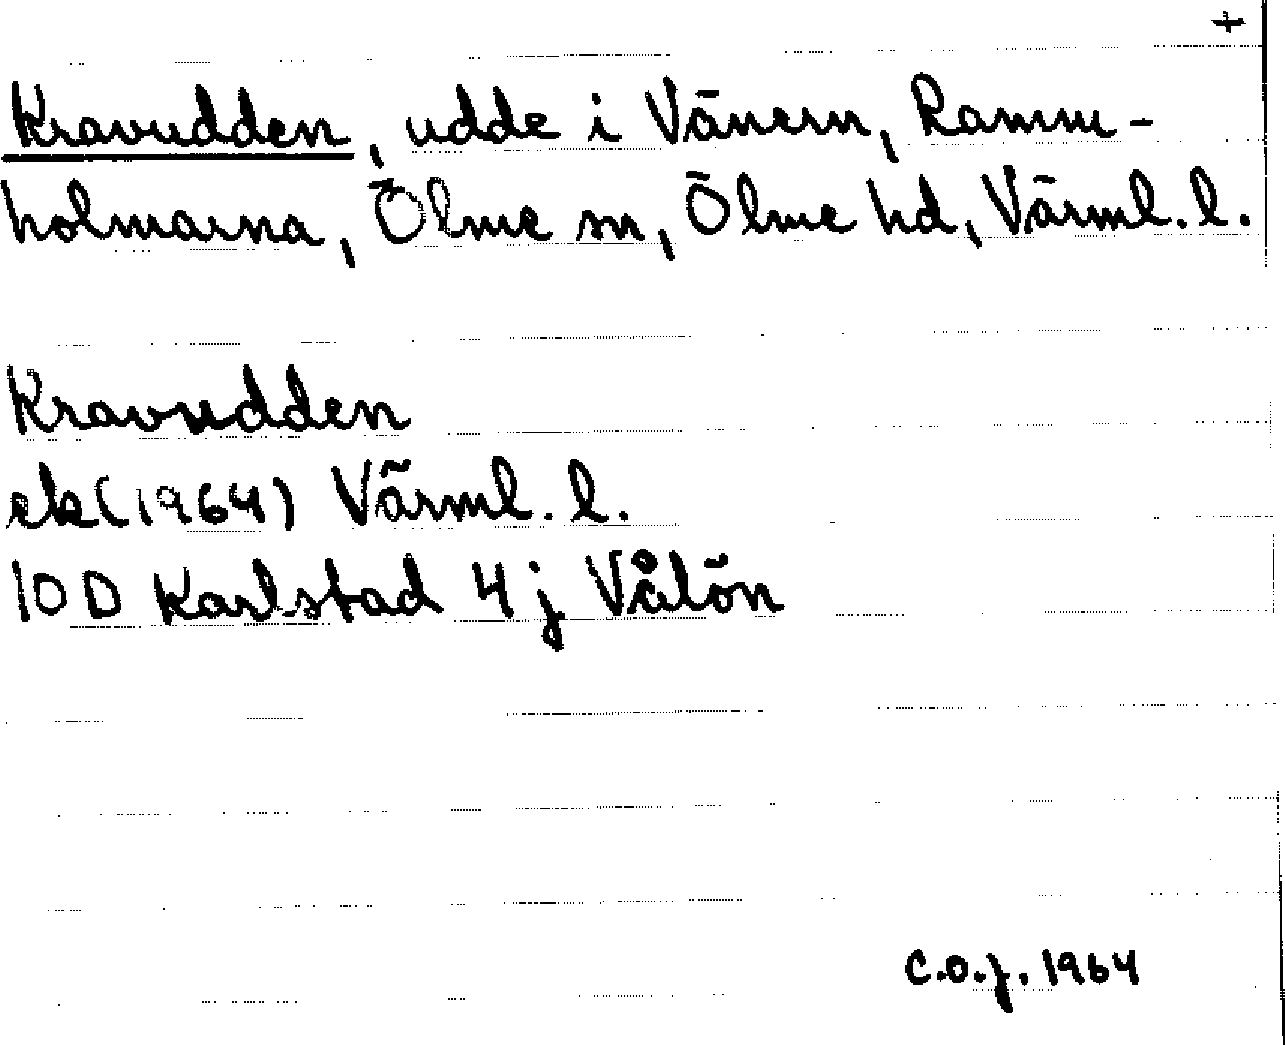 +
Kravudden, udde i Vänern, Ramm-
holmarna, Ölme sn, Ölme hd, Värml. l.
Kravudden
ek (1964) Värml. l.
10 D Karlstad 4 j Vålön
C.O.J. 1964